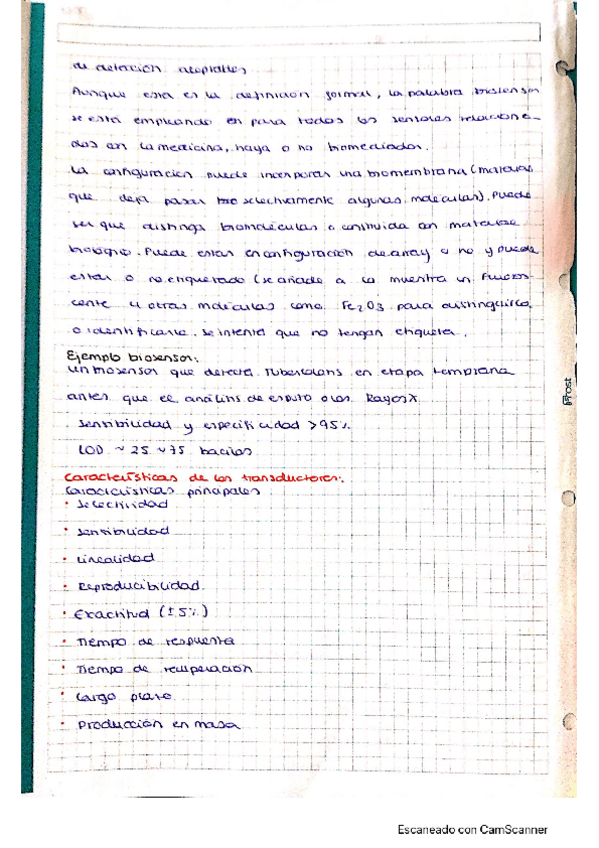 de detección aceptables
Aunque esta es la definición formal, la palabra biosensor
se esta empleando en para todos los sensores relaciona-
dos con la medicina, haya o no biomediador.
La configuración puede incorporar una biomembrana (materias
que deja pasar selectivamente algunas moleculas). Puede
ser que distinga biomoleculas o construida con material
biologico. Puede estar en configuración de array o no y puede
estar o no etiquetado (se añade a la muestra un fluores-
cente u otras moleculas como Fe2O3 para distinguirlo
o identificarlo. Se intenta que no tengan etiqueta.
Ejemplo biosensor:
Un biosensor que detecta Tuberculosis en etapa temprana
antes que el análisis de esputo o los Rayos X.
Sensibilidad y especificidad >95%
LOD ~ 25 ~ 75 bacilos
Características de los transductores:
Características principales
· Selectividad
· Sensibilidad
· Linealidad
· Reproducibilidad
· Exactitud (±5%)
· Tiempo de respuesta
· Tiempo de recuperación
· Largo plazo
· Producción en masa
Escaneado con CamScanner